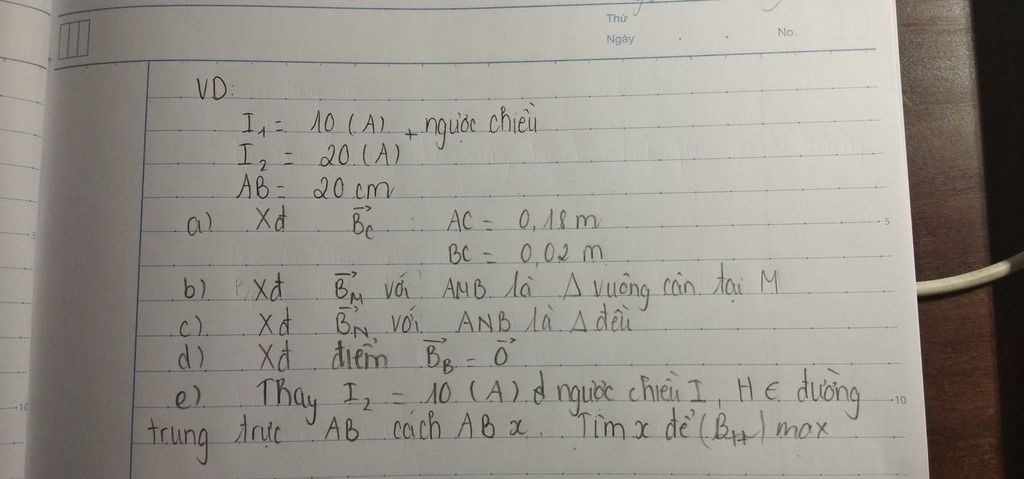 Thứ
Ngày No.
VD:
I₁ = 10 (A) + ngược chiều
I₂ = 20 (A)
AB = 20 cm
a) Xđ B⃗_C : AC = 0,18 m
5
BC = 0,02 m
b) Xđ B⃗_M với AMB là Δ vuông cân tại M
c) Xđ B⃗_N với ANB là Δ đều
d) Xđ điểm B⃗_B = 0⃗
e) Thay I₂ = 10 (A) ngược chiều I, H ∈ đường
10
trung trực AB cách AB x. Tìm x để (B_H) max